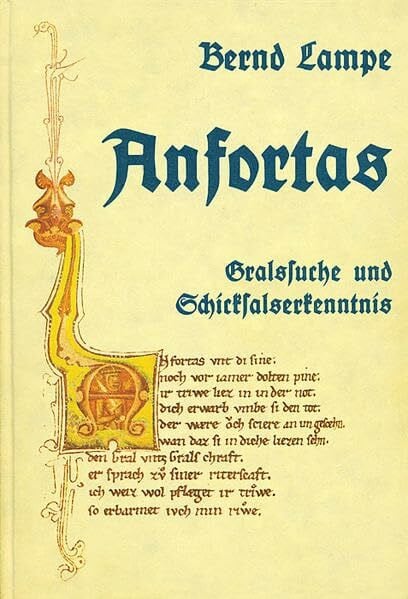 Bernd Lampe
Anfortas
Gralsſuche und
Schickſalserkenntnis
Anfortas vnt di sine:
noch vor iamer dolten pine:
ir triwe liez in in der not.
dich erwarb vmbe si den tot:
der wære oͮch sciere an im gescehn.
wan daz si in diche liezen sehn.
den Gral vntz Grals chraft.
er sprach zuͦ siner riterscaft.
ich weiz wol pflæget ir triwe.
so erbarmet ivch min riwe.